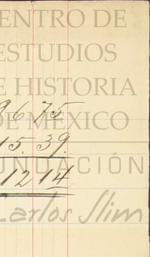 ENTRO DE
ESTUDIOS
E HISTORIA
DE MÉXICO
3675
15.39.
1214
UNDACIÓN
Carlos Slim